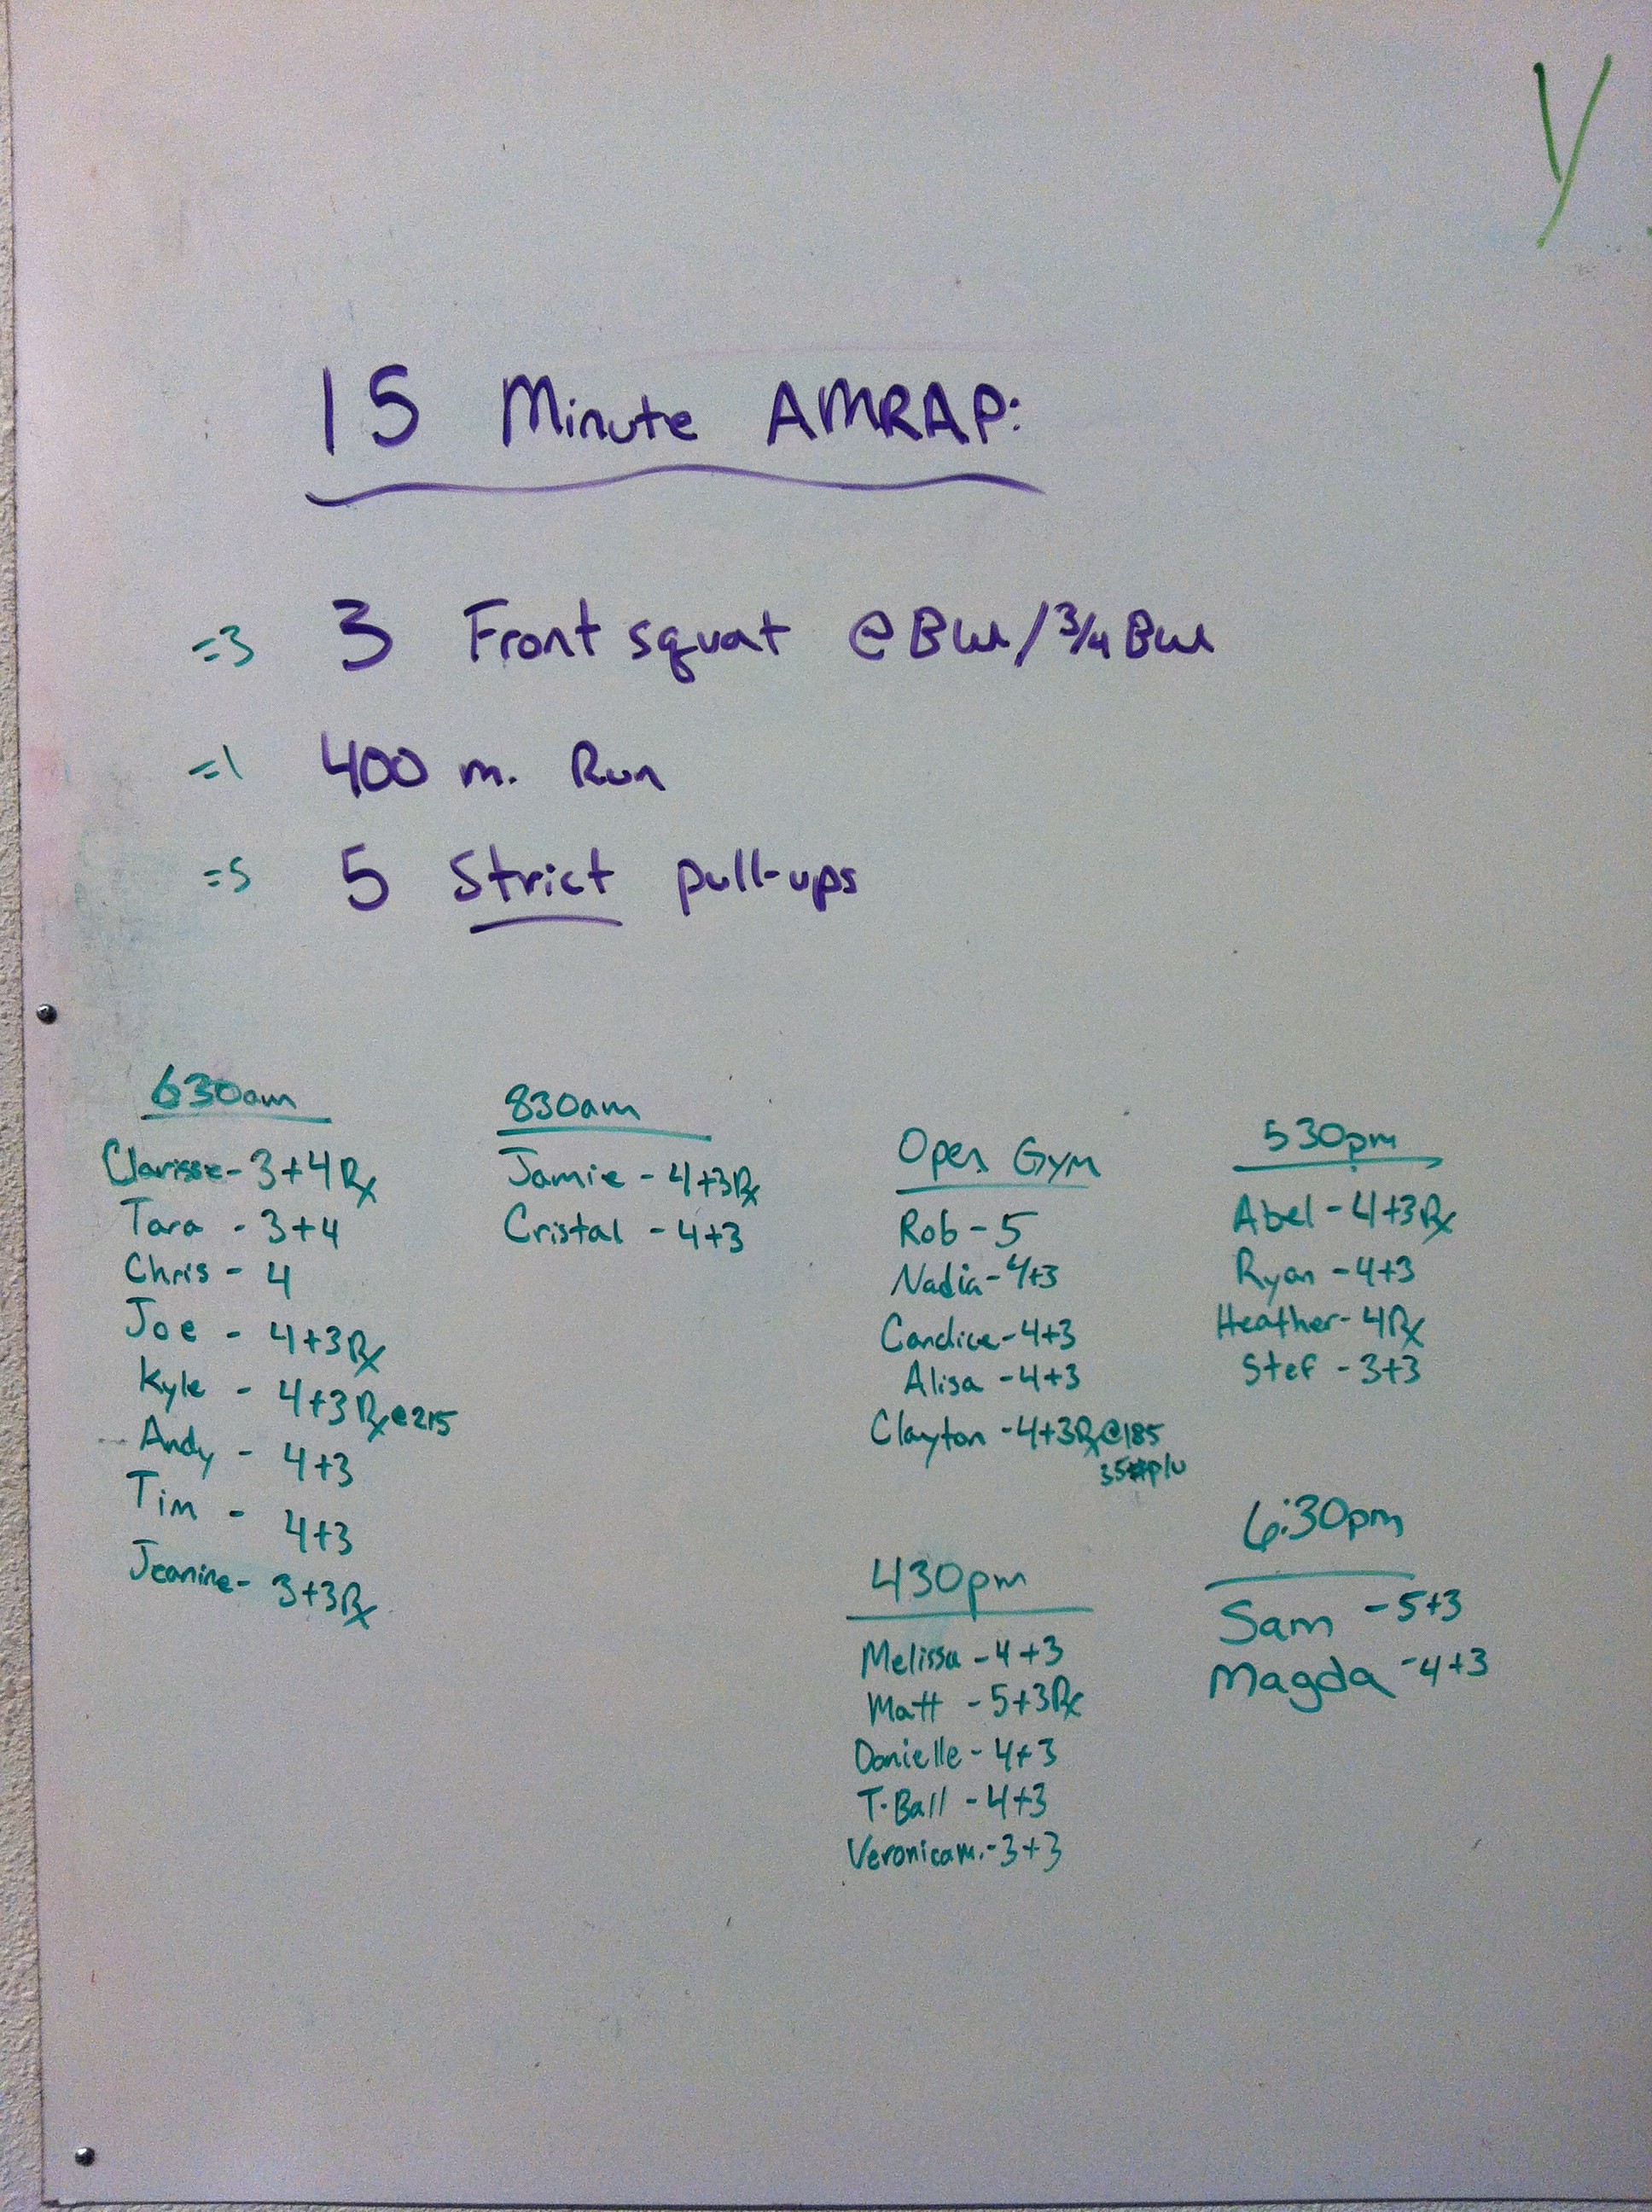 Y
15 Minute AMRAP:
=3 3 Front squat @ BW/3/4 BW
=1 400 m. Run
=5 5 Strict pull-ups
630am
Clarisse - 3+4 Rx
Tara - 3+4
Chris - 4
Joe - 4+3 Rx
Kyle - 4+3 Rx @ 215
Andy - 4+3
Tim - 4+3
Jeanine - 3+3 Rx
830am
Jamie - 4+3 Rx
Cristal - 4+3
Open Gym
Rob - 5
Nadia - 4+3
Candice - 4+3
Alisa - 4+3
Clayton - 4+3 Rx @185
35# p/u
430pm
Melissa - 4+3
Matt - 5+3 Rx
Danielle - 4+3
T-Ball - 4+3
Veronica M. - 3+3
530pm
Abel - 4+3 Rx
Ryan - 4+3
Heather - 4 Rx
Stef - 3+3
6:30pm
Sam - 5+3
Magda - 4+3